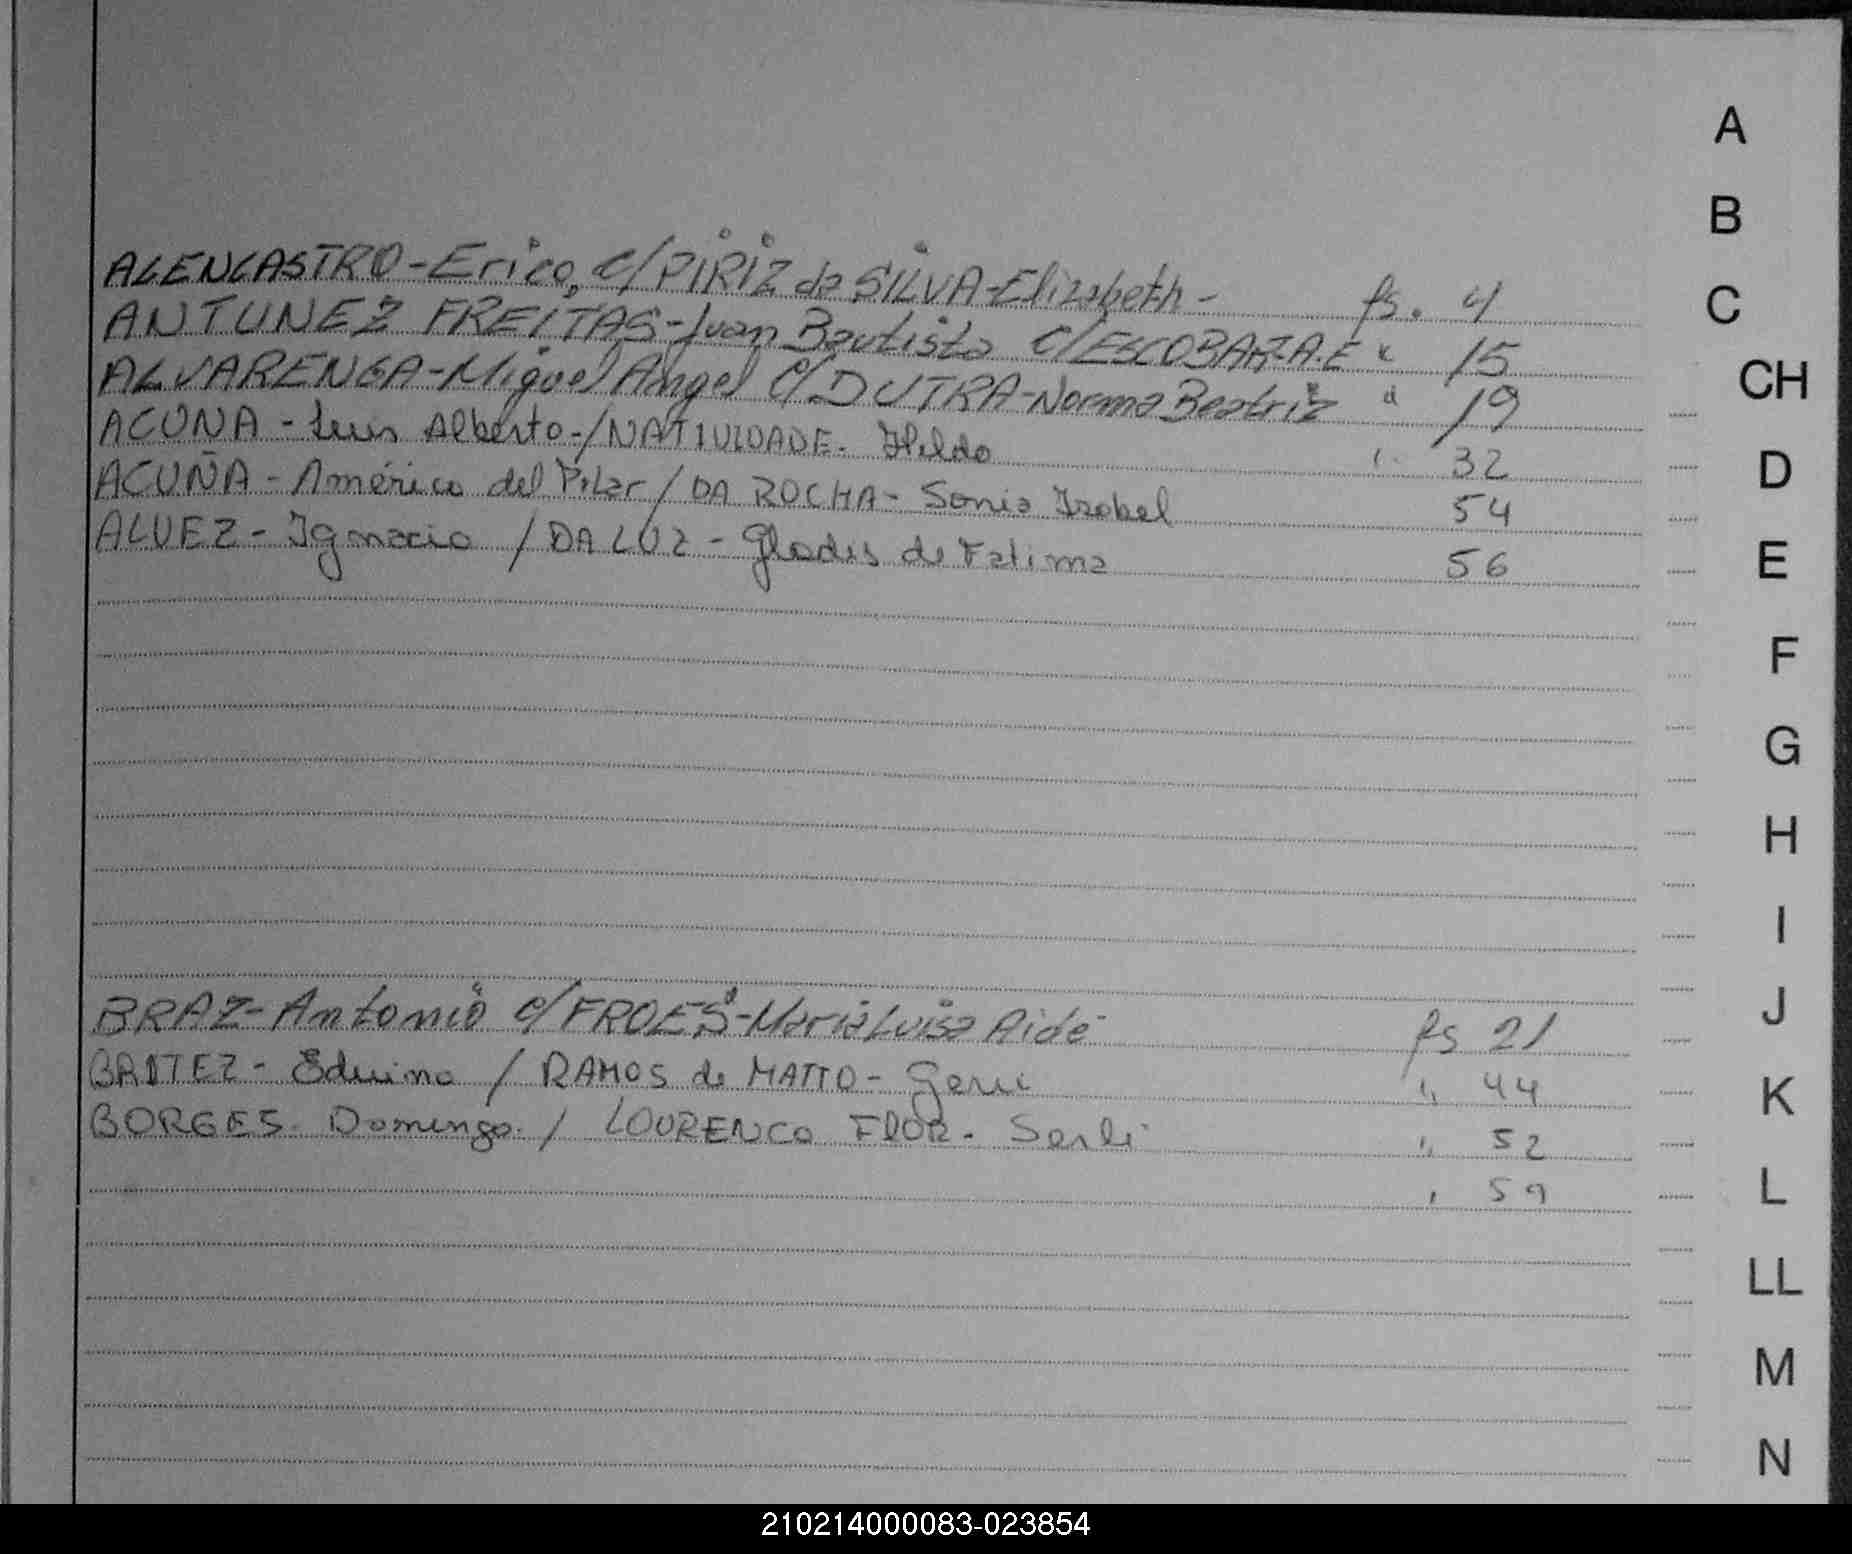 A
B
C
CH
D
E
F
G
H
I
J
K
L
LL
M
N
ALENCASTRO - Erico, c/ PIRIZ da SILVA - Elizabeth - fs. 4
ANTUNEZ FREITAS - Juan Bautista c/ ESCOBAR. A. E " 15
ALVARENGA - Miguel Angel c/ DUTRA - Norma Beatriz " 19
ACUÑA - Luis Alberto - / NATIVIDADE. Hilda " 32
ACUÑA - Américo del Pilar / DA ROCHA - Sonia Isabel 54
ALVEZ - Ignacio / DA LUZ - Gladis de Fatima 56
BRAZ - Antonio c/ FROES - Maria Luisa Aide fs 21
Eduino / RAMOS de MATTO - " 44
BORGES. Domingo. / LOURENCO FLOR - " 52
" 59
210214000083-023854